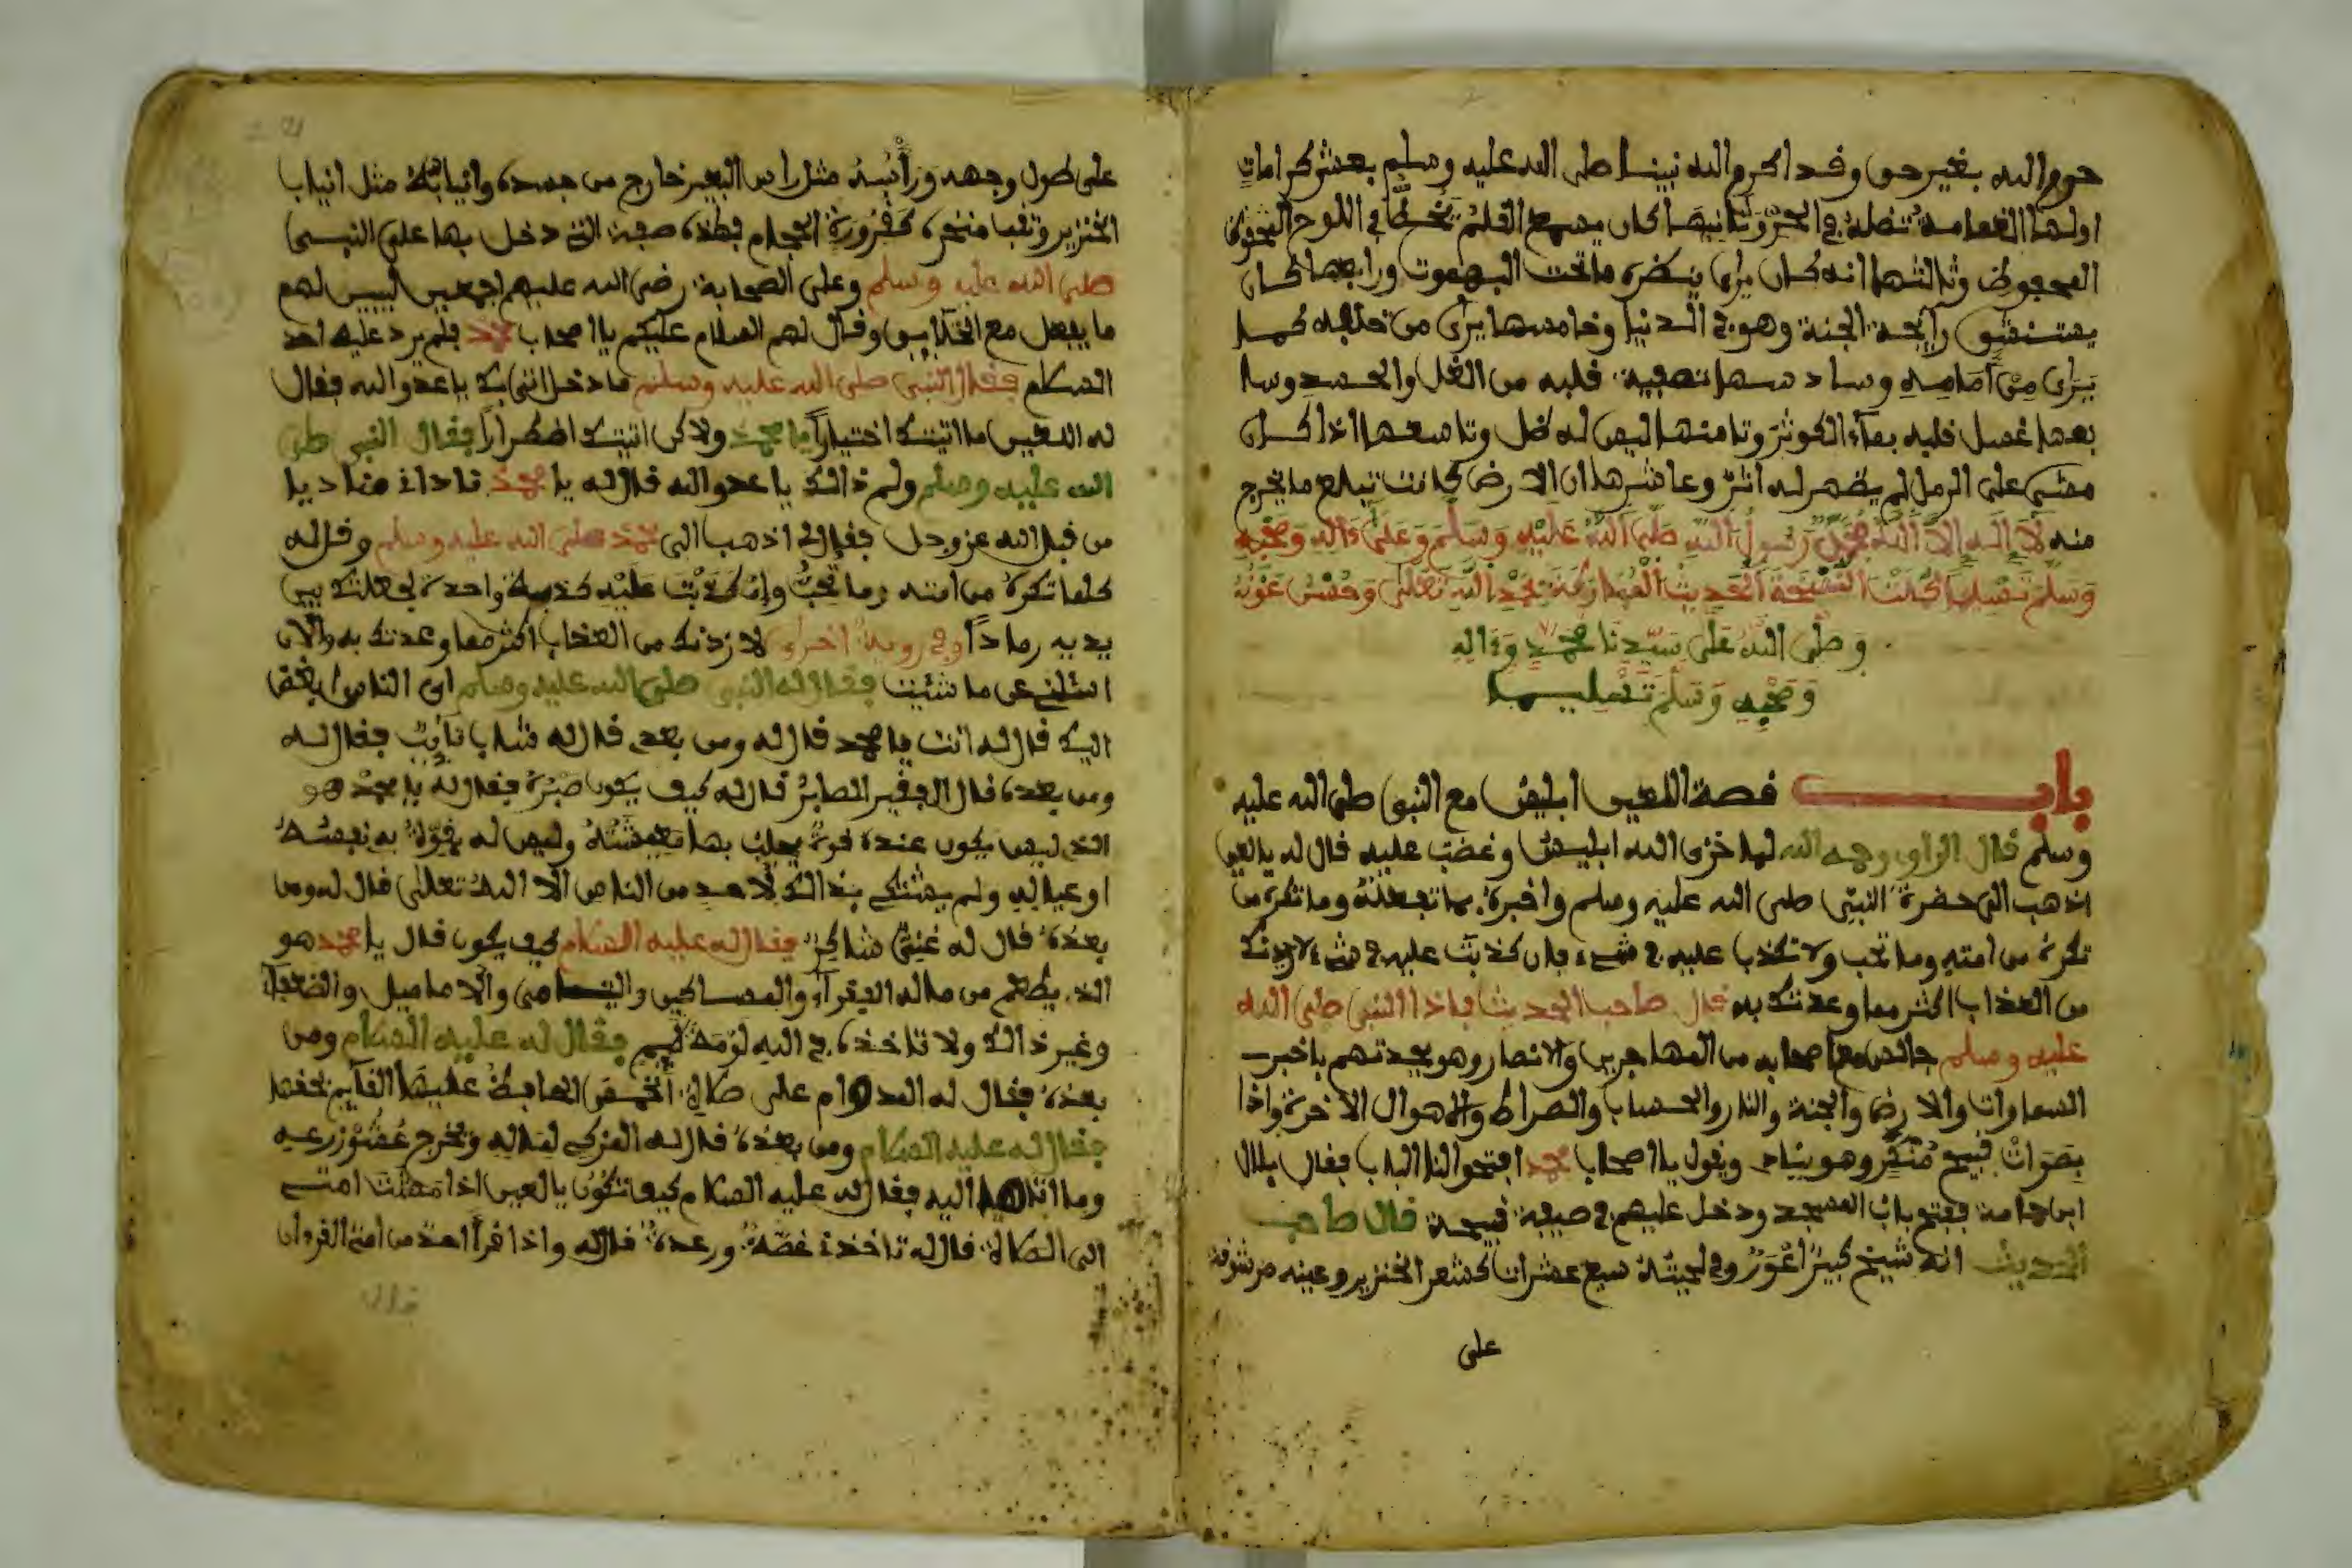 حرم الله بغير حق وقد اكرم الله نبينا صلى الله عليه وسلم بعشر كرامات
اولها الغمامة تضله في الحر وثانيها كان يسمع القلم يخط في اللوح المحفوظ
المحفوظ وثالثها انه كان يرى بنضره ما تحت البهموت ورابعها كان
يستنشق رايحة الجنة وهو في الدنيا وخامسها يرى من خلفه كما
يرى من امامه وسادسها تصفية قلبه من الغل والحسد وسا
بعها غسل قلبه بماء الكوثر وثامنها ليس له ضل وتاسعها اذا كان
مشى على الرمل لم يضهر له اثر وعاشرها ان الارض كانت تبلع ما يخرج
منه لا اله الا الله محمد رسول الله صلى الله عليه وسلم وعلى ءاله وصحبه
وسلم تسليما كملت النسخة الحديث المباركة بحمد الله تعالى وحسن عونه
وصلى الله على سيدنا محمد وءاله
وصحبه وسلم تسليما
باب قصة اللعين ابليس مع النبي صلى الله عليه
وسلم قال الراوي رحمه الله لما خزى الله ابليس وغضب عليه قال له يا لعين
اذهب الى حضرة النبي صلى الله عليه وسلم واخبره بما تفعله وما تكره من
تكره من امته وما تحب ولا تكذب عليه في شيء فان كذبت عليه في شيء لازيدنك
من العذاب اكثر مما وعدتك به قال صاحب الحديث فاذا النبي صلى الله
عليه وسلم جالس مع اصحابه من المهاجرين والانصار وهو يحدثهم باخبر
السماوات والارض والجنة والنار والحساب والصراط والاهوال الاخرة واذا
بصوات قبيح منكر وهو يناد ويقول يا اصحاب محمد افتحوا لنا الباب فقال بلال
ابن حمامة ففتح باب المسجد ودخل عليهم في صيفة قبيحة قال صاحب
الحديث انه شيخ كبير اعور وفي لحيته سبع عشرات كشعر الخنزير وعينه مرشوقة
على
على طول وجهه وراسه مثل راس البعير خارج من جسده وانيابه مثل انياب
الخنزير وثقبا منخره كقرورة الحجام فهذه صفة التي دخل بها على النبي
صلى الله عليه وسلم وعلى الصحابة رضى الله عليهم اجمعين ليبين لهم
ما يفعل مع الخلايق وقال لهم السلام عليكم يا اصحاب محمد فلم يرد عليه احد
السلام فقال النبي صلى الله عليه وسلم ما دخل اتى بك يا عدو الله فقال
له اللعين ما اتيتك اختيارا يا محمد ولاكن اتيتك اضطرارا فقال النبي صلى
الله عليه وسلم ولم ذالك يا عدو الله قال له يا محمد نادانى مناديا
من قبل الله عز وجل فقال لى اذهب الى محمد صلى الله عليه وسلم وقل له
كلما تكره من امته وما تحب وان كذبت عليه كذبة واحدة لجعلتك بين
يديه رمادا وفي روية اخرى لازدنك من العذاب اكثر مما وعدتك به والان
اسئلني عن ما شئت فقال له النبي صلى الله عليه وسلم اى الناس ابغض
اليك قال له انت يا محمد قال له ومن بعدى قال له شاب تايب فقال له
ومن بعده قال الفقير الصابر قال له كيف يكون صبره فقال له يا محمد هو
الذى ليس يكون عنده قوة يجلب بها معيشته وليس له يقوة به نفسه
او عياله ولم يشتكى بذالك لاحد من الناس الا الله تعالى قال له ومن
بعده قال له غني شاكر فقال له عليه السلام كيف يكون قال يا محمد هو
الذ يطعم من ماله الفقراء والمساكين واليتامى والاراميل والضعفاء
وغير ذالك ولا تاخذه في الله لومة لايم فقال له عليه السلام ومن
بعده فقال له المداوم على صلاة الخمس الحافظ عليها القايم بحقها
فقال له عليه السلام ومن بعده قال له المزكى لماله ويخرج عشور زرعه
اليه فقال له عليه السلام كيف تكون يا لعين اذا مهلت امتى
الى الصلاة قال له تاخذنى غصة ورعدة قال له واذا قرا احد من امتي القرءان
قال له